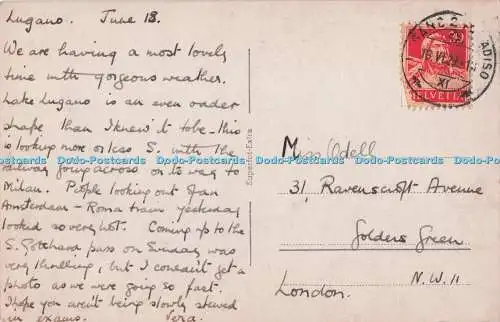 Lugano. June 18.
We are having a most lovely
time with gorgeous weather.
Lake Lugano is an even odder
shape than I knew it to be. This
is looking more or less S. with the
railway going across on its way to
Milan. People looking out of an
Amsterdam - Roma train yesterday
looked so very hot. Coming up to the
S. Gotthard pass on Sunday was
very thrilling, but I couldn't get a
photo as we were going so fast.
I hope you aren't being slowly stewed
in exams. Vera.
Exclusif-Extra
HELVETIA
XI
Miss Odell
31, Ravenscroft Avenue
Golders Green
N.W. 11
London.
Dodo-Postcards Dodo-Postcards Dodo-Postcards Dodo-Postcards Dodo-Postcards Dodo-Postcards